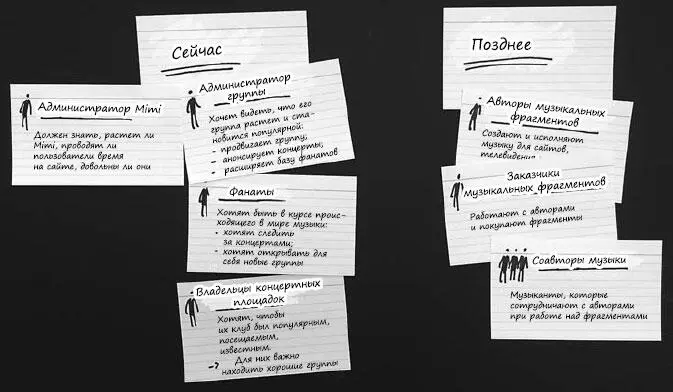 Сейчас
Администратор Mimi
Должен знать, растет ли
Mimi, проводят ли
пользователи время
на сайте, довольны ли они
Администратор
группы
Хочет видеть, что его
группа растет и ста-
новится популярной:
- продвигает группу;
- анонсирует концерты;
- расширяет базу фанатов
Фанаты
Хотят быть в курсе проис-
ходящего в мире музыки:
- хотят следить
за концертами;
- хотят открывать для
себя новые группы
Владельцы концертных
площадок
Хотят, чтобы
их клуб был популярным,
посещаемым,
известным.
→ Для них важно
находить хорошие группы
Позднее
Авторы музыкальных
фрагментов
Создают и исполняют
музыку для сайтов,
телевидения
Заказчики
музыкальных фрагментов
Работают с авторами
и покупают фрагменты
Соавторы музыки
Музыканты, которые
сотрудничают с авторами
при работе над фрагментами